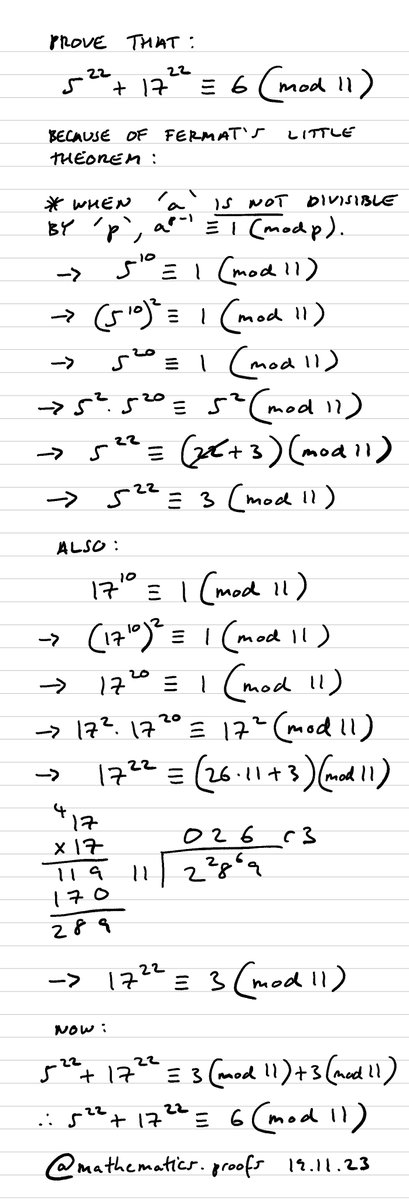 PROVE THAT:
5²² + 17²² ≡ 6 (mod 11)
BECAUSE OF FERMAT'S LITTLE
THEOREM:
* WHEN 'a' IS NOT DIVISIBLE
BY 'p', aᵖ⁻¹ ≡ 1 (mod p).
→ 5¹⁰ ≡ 1 (mod 11)
→ (5¹⁰)² ≡ 1 (mod 11)
→ 5²⁰ ≡ 1 (mod 11)
→ 5² · 5²⁰ ≡ 5² (mod 11)
→ 5²² ≡ (22 + 3) (mod 11)
→ 5²² ≡ 3 (mod 11)
ALSO:
17¹⁰ ≡ 1 (mod 11)
→ (17¹⁰)² ≡ 1 (mod 11)
→ 17²⁰ ≡ 1 (mod 11)
→ 17² · 17²⁰ ≡ 17² (mod 11)
→ 17²² ≡ (26·11 + 3) (mod 11)
⁴17
x 17
119
170
289
0 2 6 r3
11 2 ²8 ⁶9
→ 17²² ≡ 3 (mod 11)
NOW:
5²² + 17²² ≡ 3 (mod 11) + 3 (mod 11)
∴ 5²² + 17²² ≡ 6 (mod 11)
@mathematics.proofs 19.11.23